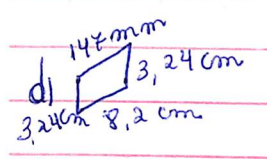 147 mm
d) 3,24 cm
3,24cm 8,2 cm